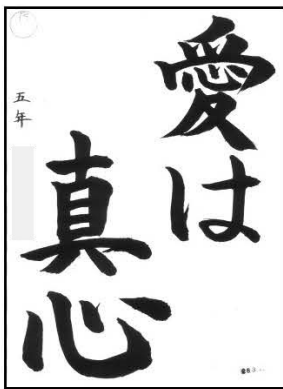 愛は
真心
五年